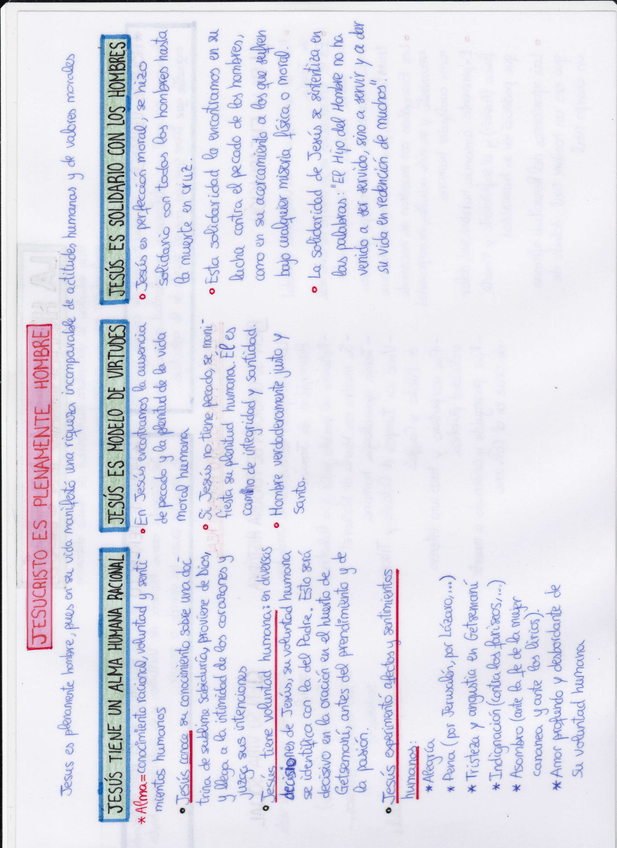 JESUCRISTO ES PLENAMENTE HOMBRE
Jesús es plenamente hombre, pues en su vida manifestó una riqueza incomparable de actitudes humanas y de valores morales
JESÚS TIENE UN ALMA HUMANA RACIONAL
* Alma = conocimiento racional, voluntad y senti-
mientos humanos
• Jesús conoce su conocimiento sobre una doc-
trina de sublime sabiduría, proviene de Dios,
y llega a la intimidad de los corazones y
juzga sus intenciones
• Jesús tiene voluntad humana: en diversas
decisiones de Jesús, su voluntad humana
se identifica con la del Padre. Esto será
decisivo en la oración en el huerto de
Getsemaní, antes del prendimiento y de
la pasión.
• Jesús experimentó afectos y sentimientos
humanos:
* Alegría
* Pena (por Jerusalén, por Lázaro,...)
* Tristeza y angustia en Getsemaní
* Indignación (contra los fariseos,...)
* Asombro (ante la fe de la mujer
cananea y ante los lirios).
* Amor profundo y desbordante de
su voluntad humana
JESÚS ES MODELO DE VIRTUDES
• En Jesús encontramos la ausencia
de pecado y la plenitud de la vida
moral humana
• Si Jesús no tiene pecado, se mani-
fiesta su plenitud humana. Él es
camino de integridad y santidad.
• Hombre verdaderamente justo y
santo.
JESÚS ES SOLIDARIO CON LOS HOMBRES
• Jesús es perfección moral, se hizo
solidario con todos los hombres hasta
la muerte en cruz.
• Esta solidaridad la encontramos en su
lucha contra el pecado de los hombres,
como en su acercamiento a los que sufren
bajo cualquier miseria física o moral.
• La solidaridad de Jesús se sintetiza en
las palabras: "El Hijo del Hombre no ha
venido a ser servido, sino a servir y a dar
su vida en redención de muchos".